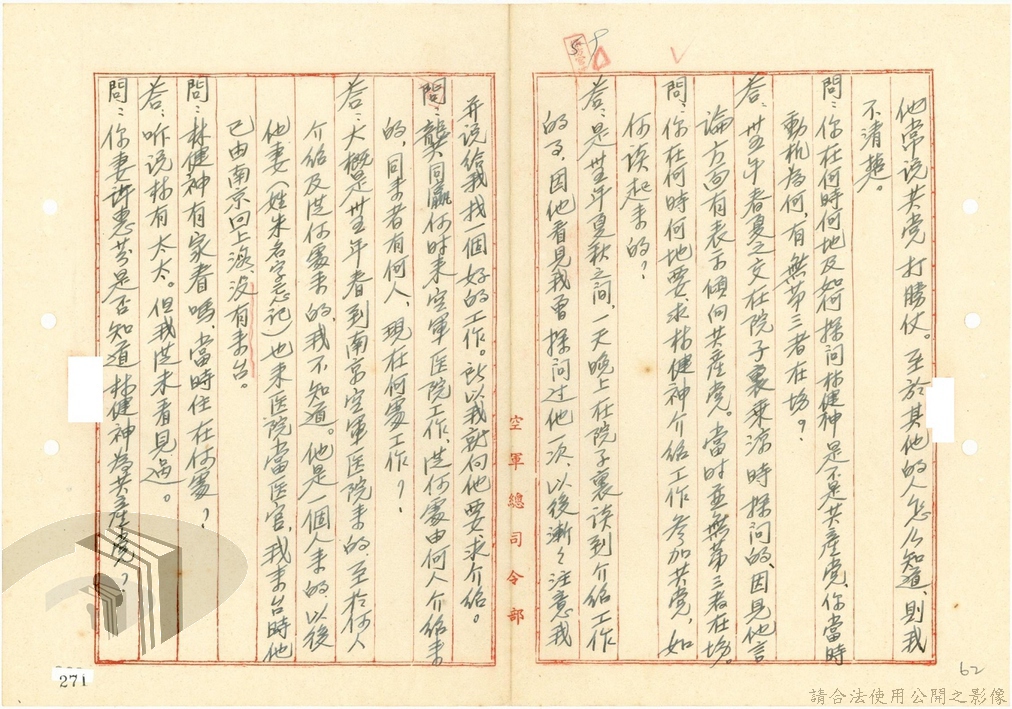 他常说共党打勝仗。至於其他的人怎么知道,則我
不清楚。
問:你在何時何地及如何探问林健神是不是共產党,你當時
動机為何,有無第三者在場?
答:卅五年春夏之交在院子裏乘涼時探问的,因見他言
論方面有表示傾向共產党。當时並無第三者在場。
問:你在何時何地要求林健神介绍工作参加共党,如
何谈起来的?
答:是卅五年夏秋之间,一天晚上在院子裏谈到介绍工作
的了,因他看見我曾探问过他一次,以後漸々注意我
并说给我找一個好的工作。所以我就向他要求介绍。
問:龔同瀛何时来空軍医院工作,從何處由何人介绍来
的,同来者有何人,現在何處工作?
答:大概是卅五年春到南京空軍医院来的,至於何人
介绍及從何處来的,我不知道。他是一個人来的,以後
他妻(姓朱名字忘记)也来医院當医官,我来台時他
已由南京回上海,没有来台。
問:林健神有家眷嗎,當時住在何處?
答:听说林有太太。但我從未看見过。
問:你妻許惠芬是否知道林健神為共產党?
空軍總司令部
59
62
271
請合法使用公開之影像